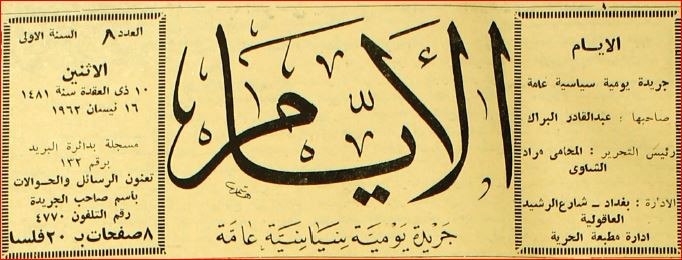 الايام
جريدة يومية سياسية عامة
صاحبها : عبدالقادر البراك
رئيس التحرير : المحامي مراد
الشماوى
الادارة : بغداد ــ شارع الرشيد
العاقولية
ادارة مطبعة الحرية
الأيام
جريدة يومية سياسية عامة
العدد ٨ السنة الاولى
الاثنين
١٠ ذى العقدة سنة ١٤٨١
١٦ نيسان ١٩٦٢
مسجلة بدائرة البريد
برقم ١٣٢
تعنون الرسائل والحوالات
باسم صاحب الجريدة
رقم التلفون ٤٧٧٠
٨ صفحات بـ ٢٠ فلسا